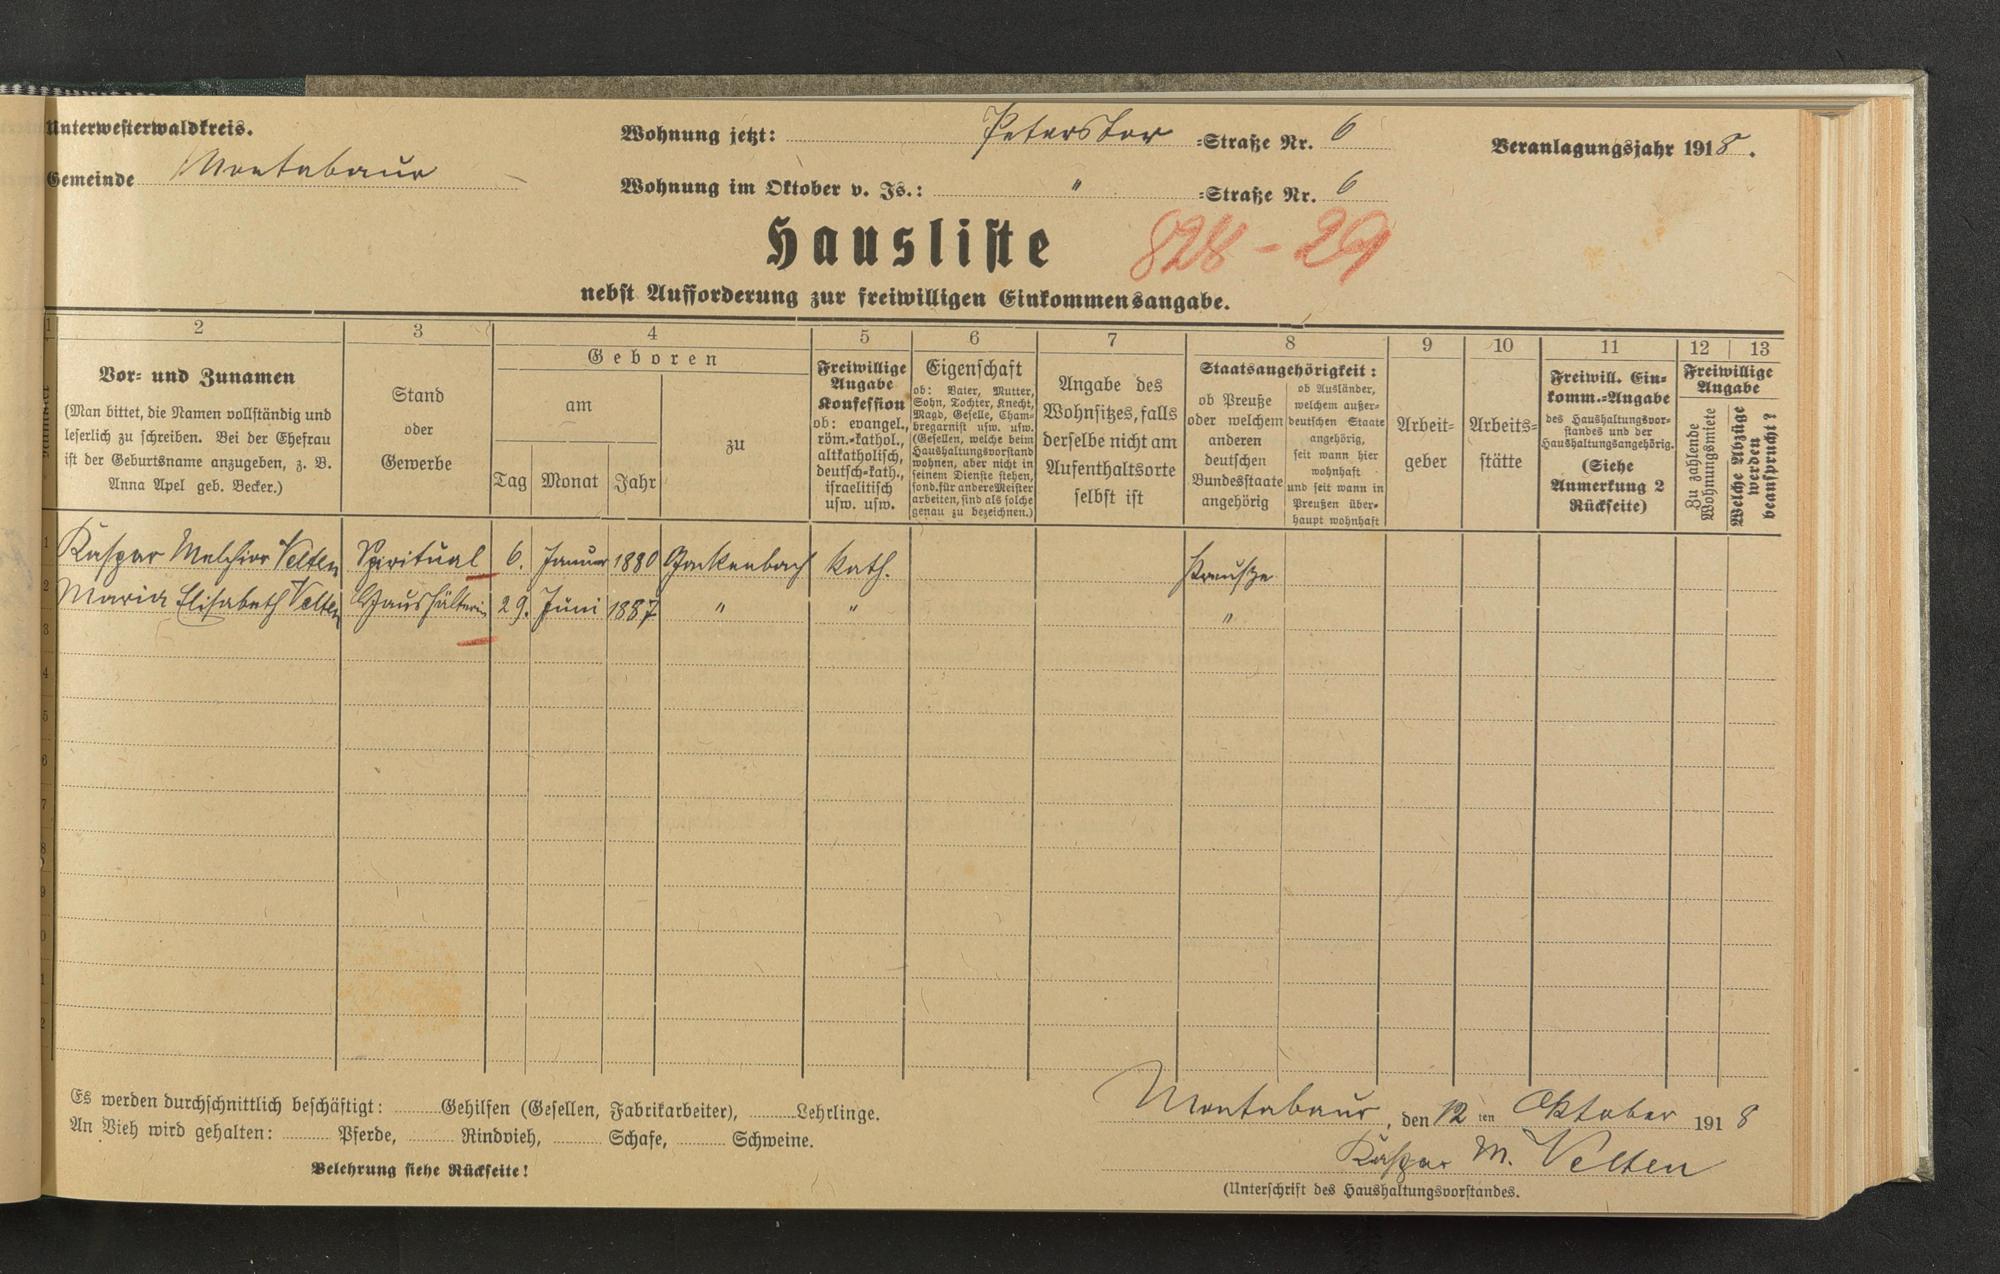 Unterwesterwaldkreis.
Gemeinde Montabaur
Wohnung jetzt: Peterstor -Straße Nr. 6
Wohnung im Oktober v. Js.: " -Straße Nr. 6
Veranlagungsjahr 1918.
Hausliste
828-29
nebst Aufforderung zur freiwilligen Einkommensangabe.
1 2 3 4 5 6 7 8 9 10 11 12 13
Vor- und Zunamen
(Man bittet, die Namen vollständig und
leserlich zu schreiben. Bei der Ehefrau
ist der Geburtsname anzugeben, z. B.
Anna Apel geb. Becker.)
Stand
oder
Gewerbe
Geboren
am
Tag Monat Jahr
zu
Freiwillige
Angabe
Konfession
ob: evangel.,
röm.-kathol.,
altkatholisch,
deutsch-kath.,
israelitisch
usw. usw.
Eigenschaft
ob: Vater, Mutter,
Sohn, Tochter, Knecht,
Magd, Geselle, Cham-
bregarnist usw. usw.
(Gesellen, welche beim
Haushaltungsvorstand
wohnen, aber nicht in
seinem Dienste stehen,
sond. für andere Meister
arbeiten, sind als solche
genau zu bezeichnen.)
Angabe des
Wohnsitzes, falls
derselbe nicht am
Aufenthaltsorte
selbst ist
Staatsangehörigkeit:
ob Preuße
oder welchem
anderen
deutschen
Bundesstaate
angehörig
ob Ausländer,
welchem außer-
deutschen Staate
angehörig,
seit wann hier
wohnhaft
und seit wann in
Preußen über-
haupt wohnhaft
Arbeit-
geber
Arbeits-
stätte
Freiwill. Ein-
komm.-Angabe
des Haushaltungsvor-
standes und der
Haushaltungsangehörig.
(Siehe
Anmerkung 2
Rückseite)
Freiwillige
Angabe
Zu zahlende
Wohnungsmiete
Welche Abzüge
werden
beansprucht?
1 Kaspar Melchior Velten Spiritual 6. Januar 1880 Gackenbach kath. Preuße
2 Maria Elisabeth Velten Haushälterin 29. Juni 1887 " " "
3
4
5
6
7
8
9
0
1
2
Es werden durchschnittlich beschäftigt: Gehilfen (Gesellen, Fabrikarbeiter), Lehrlinge.
An Vieh wird gehalten: Pferde, Rindvieh, Schafe, Schweine.
Belehrung siehe Rückseite!
Montabaur, den 12ten Oktober 1918
Kaspar M. Velten
(Unterschrift des Haushaltungsvorstandes.